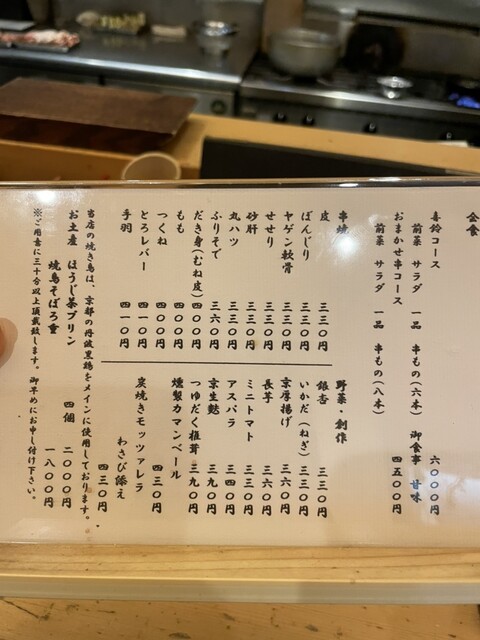 会食
喜鈴コース
前菜 サラダ 一品 串もの(六本) 御食事 甘味
六〇〇〇円
おまかせ串コース
前菜 サラダ 一品 串もの(八本)
四五〇〇円
串焼
皮 三三〇円
ぼんじり 三三〇円
ヤゲン軟骨 三三〇円
せせり 三三〇円
砂肝 三三〇円
丸ハツ 三三〇円
ふりそで 三六〇円
だき身(むね皮) 四〇〇円
もも 四〇〇円
つくね 四〇〇円
とろレバー 四一〇円
手羽 四一〇円
野菜・創作
銀杏 三三〇円
いかだ(ねぎ) 三三〇円
京厚揚げ 三六〇円
長芋 三六〇円
ミニトマト 三三〇円
アスパラ 三四〇円
京生麩 三九〇円
つゆだく椎茸 三九〇円
燻製カマンベール
四三〇円
炭焼きモッツァレラ
わさび添え
四三〇円
当店の焼き鳥は、京都の丹波黒鶏をメインに使用しております。
お土産 ほうじ茶プリン 四個 二〇〇〇円
焼鳥そぼろ重 一八〇〇円
※ご用意に三十分以上頂戴致します。御早めにお申し付け下さい。